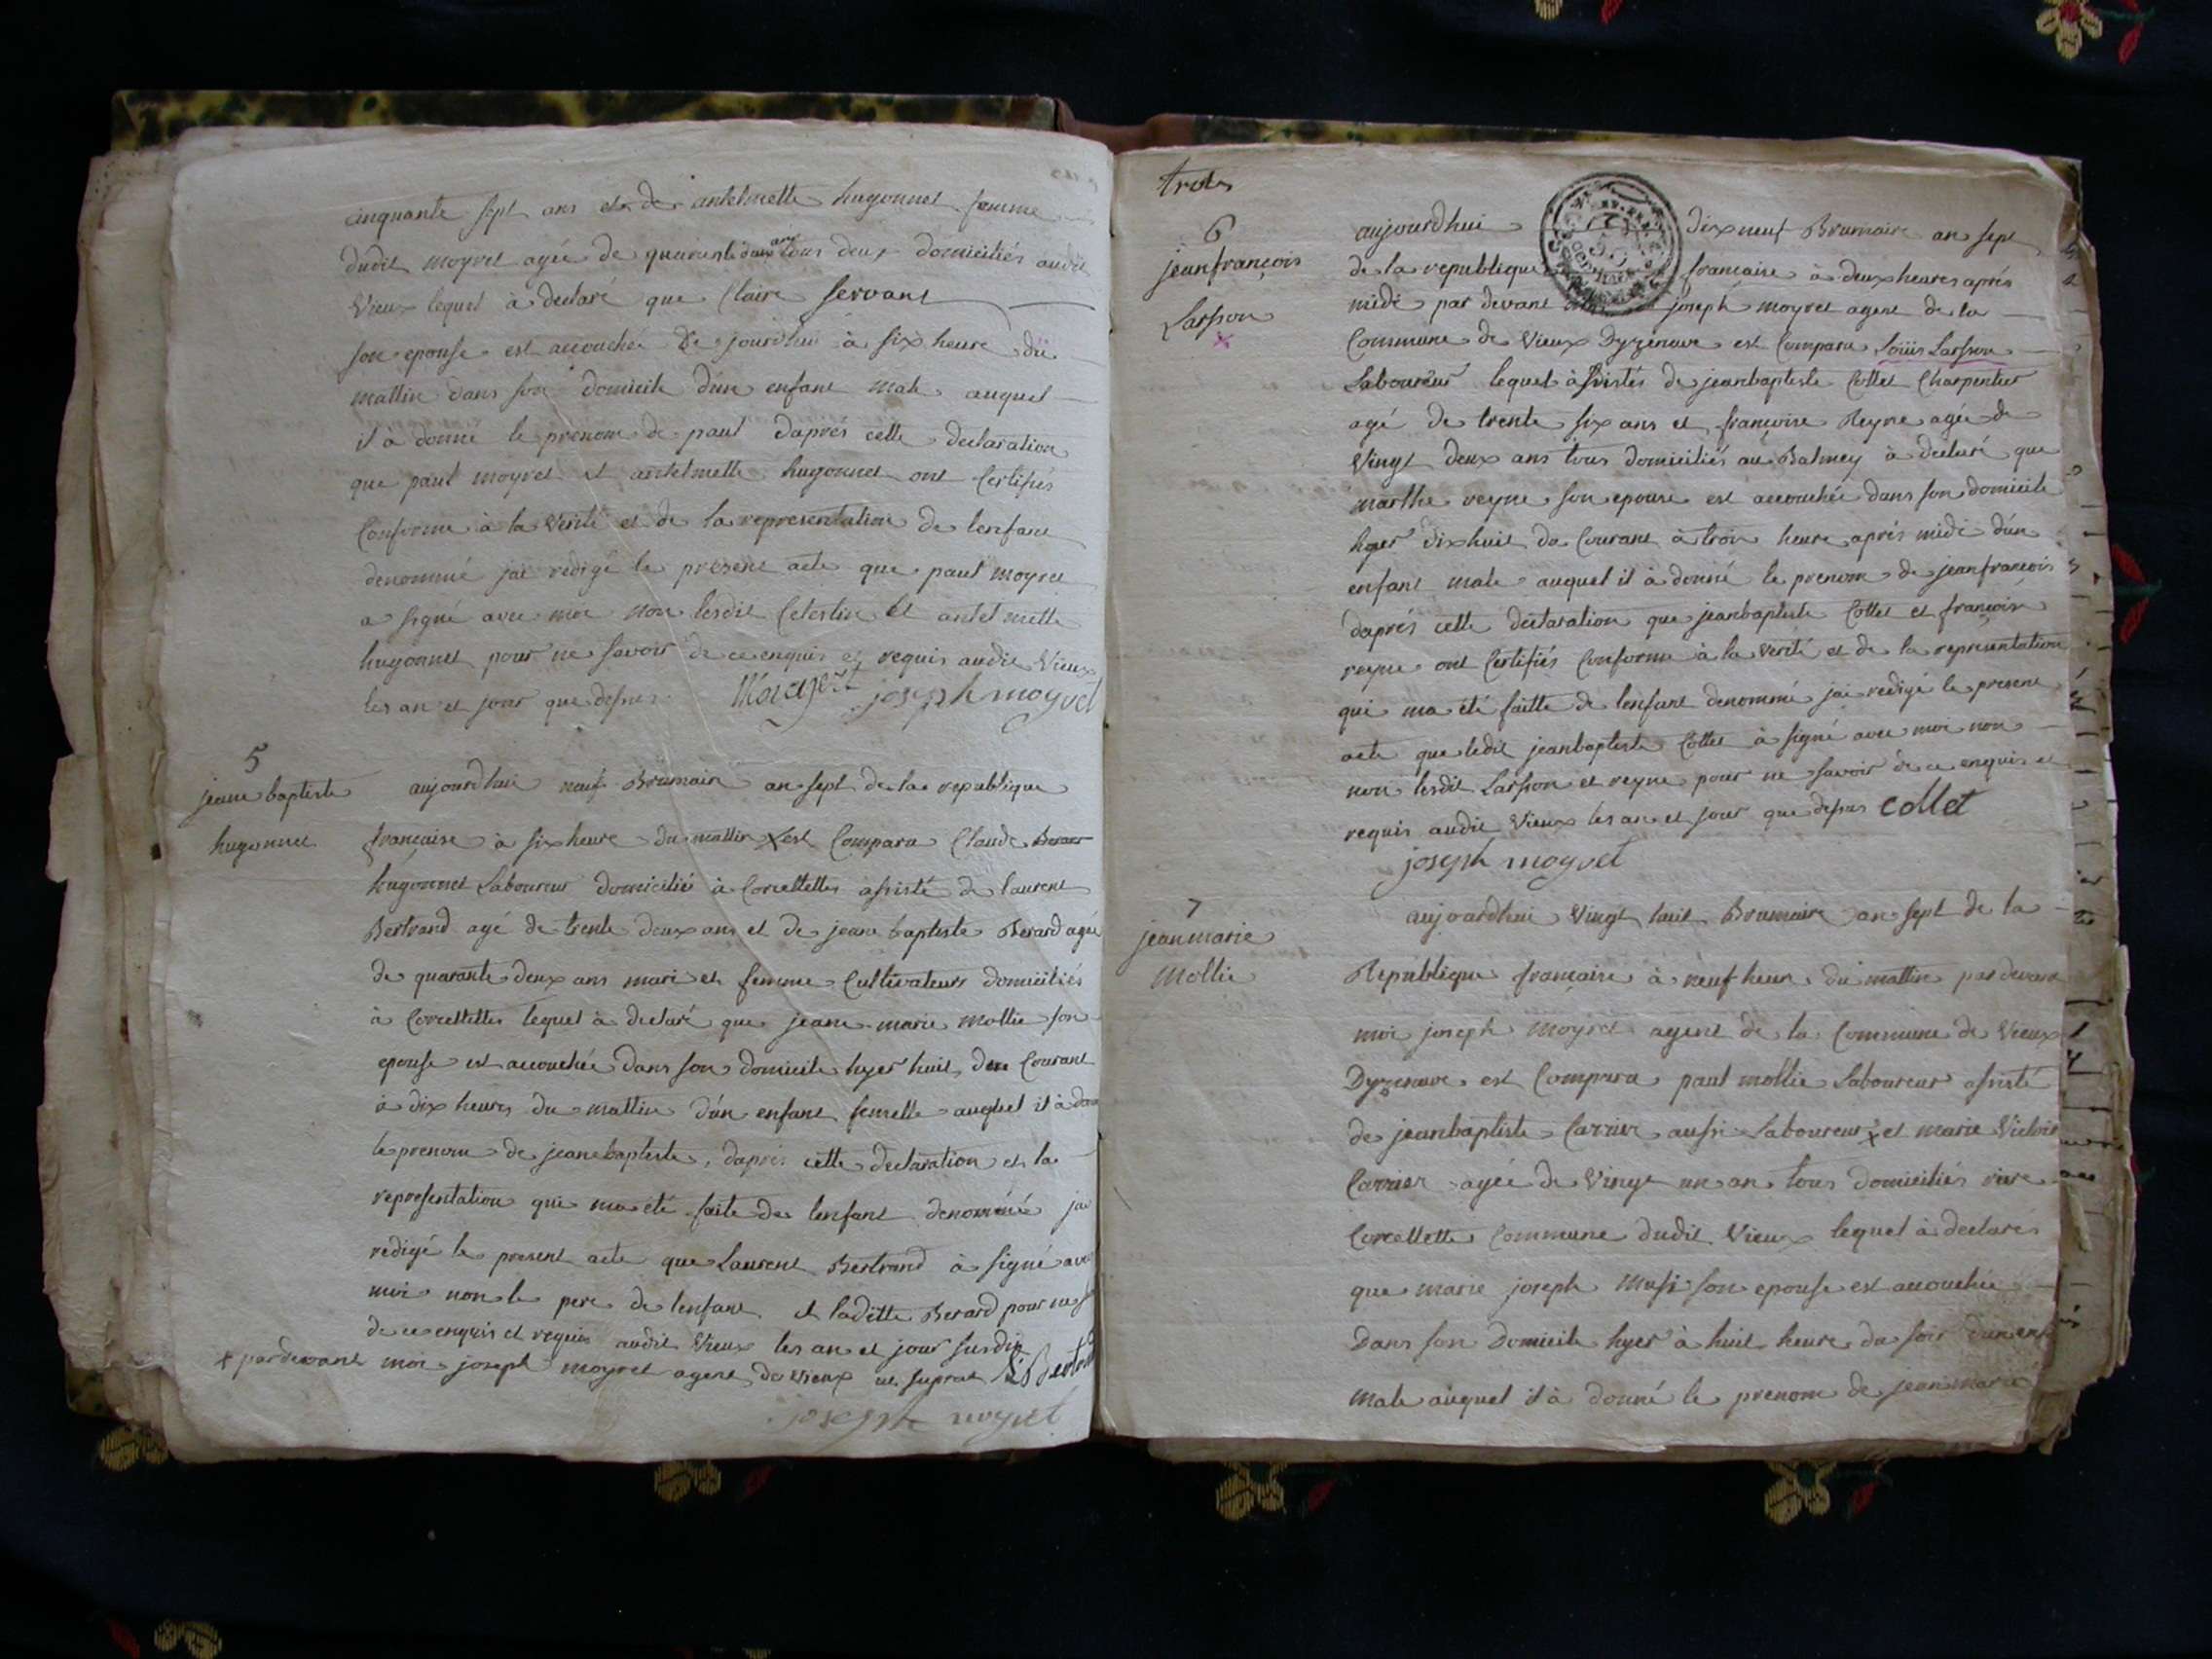 cinquante sept ans et de antelmette hugonnet femme
dudit moyret agée de quarante deux ans tous deux domiciliés audit
Vieux lequel à declaré que Claire servant
son epouse est accouchée De jourdhui à six heure du
mattin dans son domicile d'un enfant male auquel
il à donné le prenom de paul daprés cette declaration
que paul moyret et antelmette hugonnet ont Certifiés
Conforme à la Verité et de la representation de lenfant
denommé jai redigé le present acte que paul moyret
a signé avec moi non lesdit Celestin et antelmette
hugonnet pour ne savoir de ce enquis et requis audit Vieux
les an et jour que dessus Moyret joseph moyret
5
jeane baptiste
hugonnet
aujourdhui neuf Brumaire an sept de la republique
francaise à six heure du mattin x est Comparu Claude
hugonnet Laboureur domicilié à Corcellettes assisté de laurent
Bertrand agé de trente deux ans et de jeane baptiste Berard agée
de quarante deux ans mari et femme Cultivateurs domiciliés
à Corcellettes lequel à declaré que jeane marie mollie son
epouse est accouchée dans son domicile hyer huit du Courant
à dix heures du mattin d'un enfant femelle auquel il à donné
le prenom de jeane baptiste, daprés cette declaration et la
representation qui ma été faite de lenfant denommé jai
redigé le present acte que Laurent Bertrand à signé avec
moi non le pere de lenfant et laditte Berard pour ne
de ce enquis et requis audit Vieux les an et jour susdit
x pardevant moi joseph moyret agent de Vieux ut supra
joseph moyret
trois
6
jeanfrançois
Larsson
aujourdhui dixneuf Brumaire an sept
de la republique francaise à deux heures aprés
midi par devant joseph moyret agent de la
Commune de Vieux Dyzenave est Comparu Loüis Larsson
Laboureur lequel assistés de jeanbaptiste Collet Charpentier
agé de trente six ans et françoise Reyne agée de
Vingt deux ans tous domiciliés au Balmey à declaré que
marthe reyne son epouse est accouchée dans son domicile
hyer dixhuit du Courant à trois heure aprés midi d'un
enfant male auquel il à donné le prenom de jeanfrancois
daprés cette declaration que jeanbaptiste Collet et françoise
reyne ont Certifiés Conforme à la Verité et de la representation
qui ma été faitte de lenfant denommé jai redigé le present
acte que ledit jeanbaptiste Collet à signé avec moi non
non lesdit Larsson et reyne pour ne savoir de ce enquis et
requis audit Vieux les an et jour que dessus collet
joseph moyret
7
jeanmarie
Mollie
aujourdhui Vingt huit Brumaire an sept de la
Republique francaise à neuf heure du mattin par devant
moi joseph moyret agent de la Commune de Vieux
Dyzenave est Comparu paul mollie Laboureur assisté
de jeanbaptiste Carrier aussi Laboureur x et marie Victoire
Carrier agée de Vingt un an tous domiciliés rière
Corcellette Commune dudit Vieux lequel à declarés
que marie joseph son epouse est accouchée
Dans son Domicile hyer à huit heure du soir d'un enf
male auquel il à donné le prenom de jeanmarie